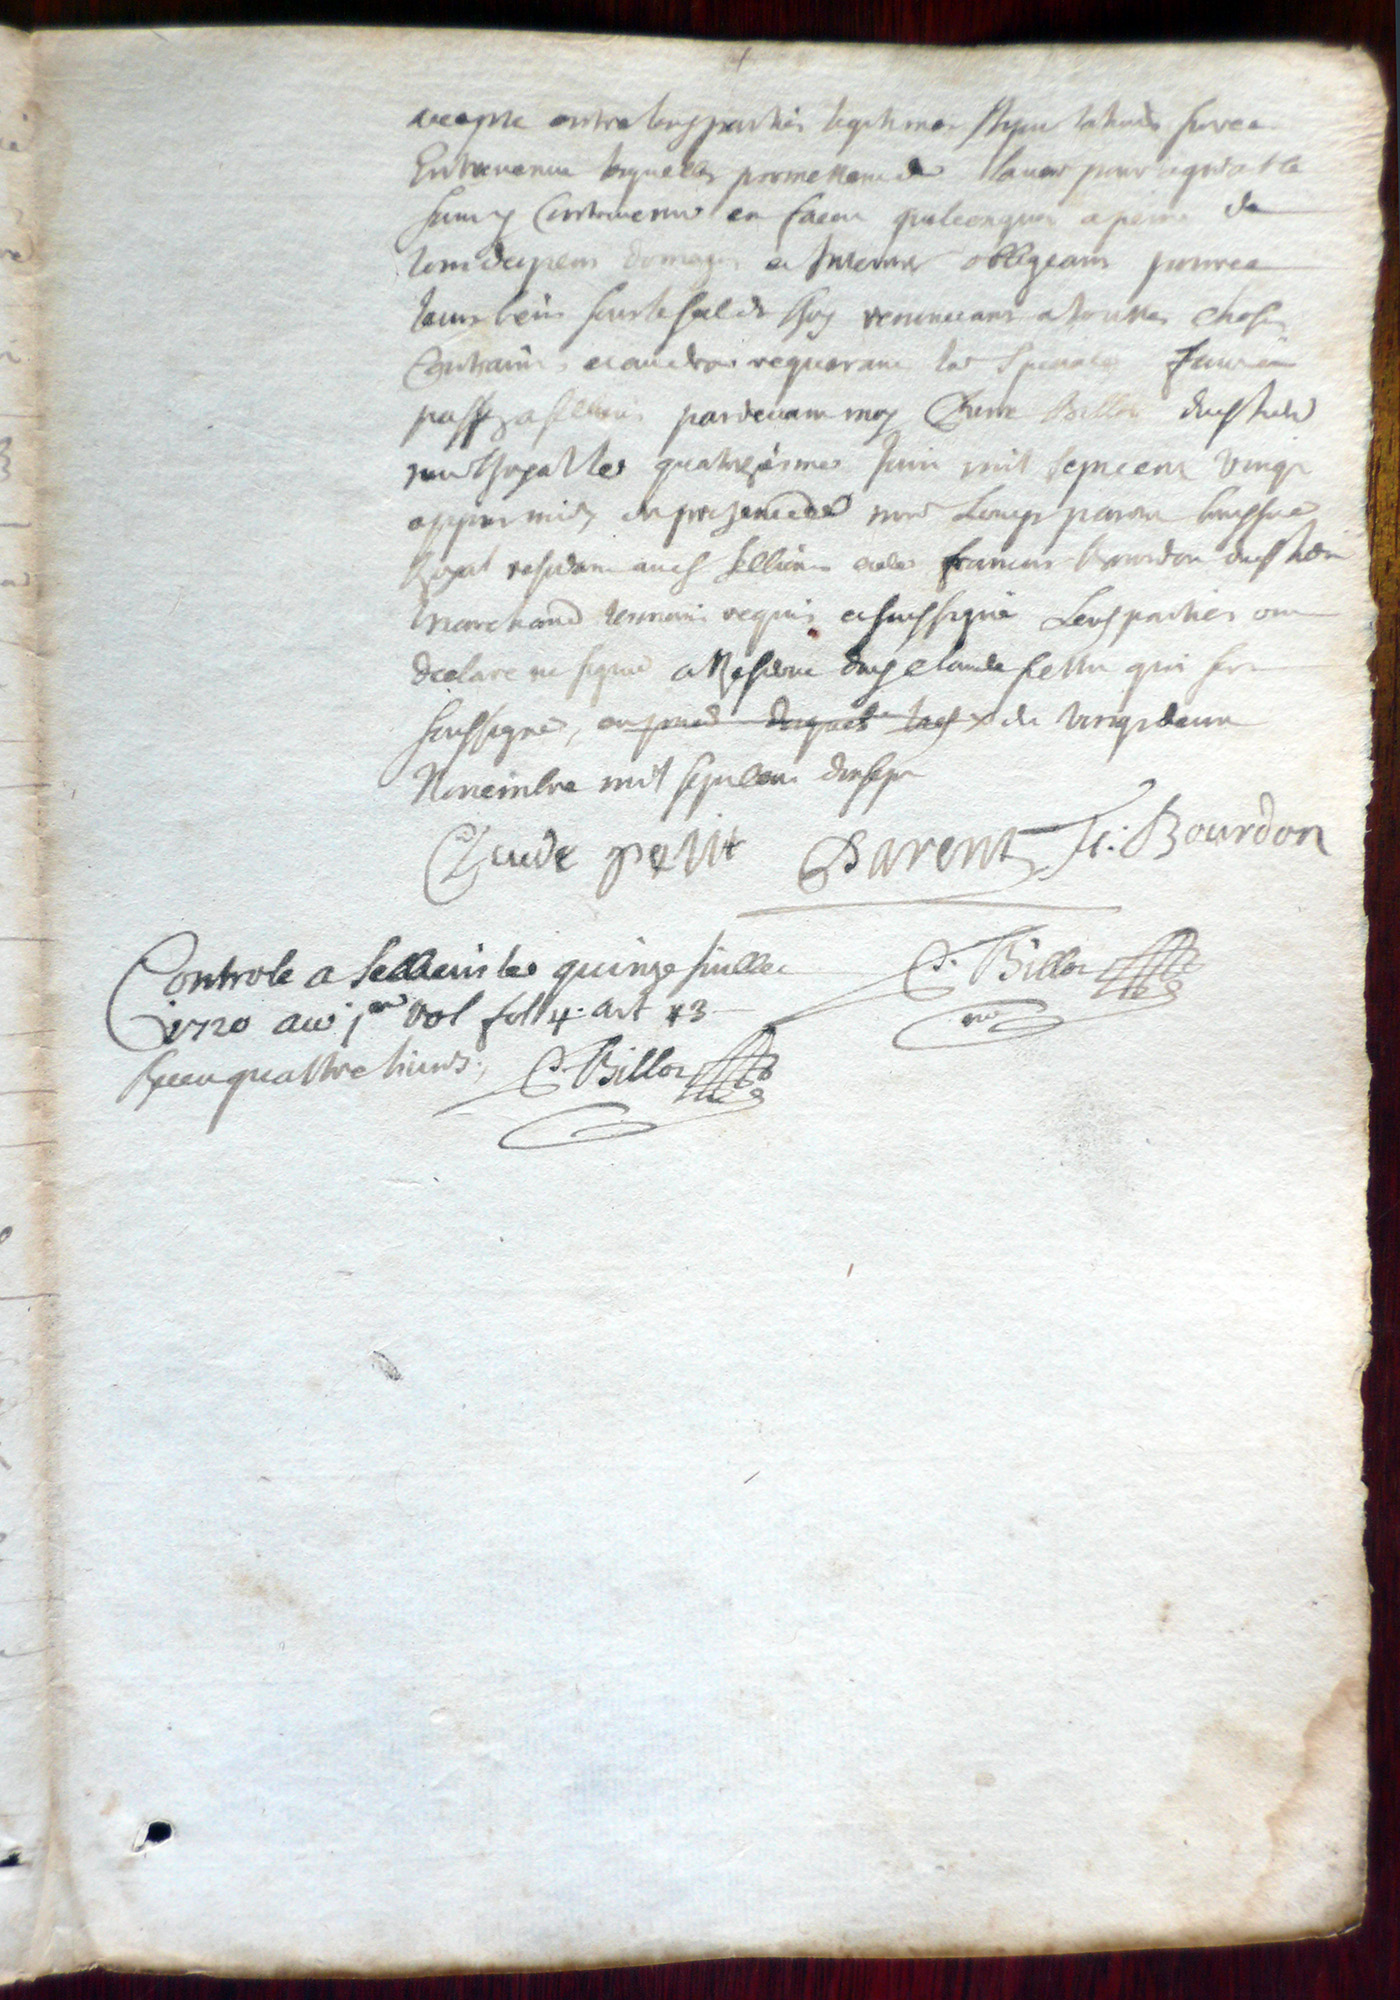 accepte entre lesd parties legitimes stipulations sur ce
Entrevenue lesquelles promettent de lavoir pour agreable
sans y Contrevenir en facon quelconques a peine de
tous despens domages et Interest obligeans pour ce
leurs biens sous le seel du Roy renoncant a touttes choses
Contraires et au droit requerant la speciale fait et
passez a Sellieres pardevant moy Pierre Billot dud lieu
no.re Royal le quatrziesmes Juin mil sept cent vingt
appres midy en presence de Louys parent huissier
Royal residant aud Sellieres et de francois Bourdon dud lieu
Marchand tesmoins requis et soussigné Lesd parties ont
declare ne signer a Reserve dud claude petit qui sest
soussigné, du vingt deux
Novembre mil sept cent dix sept
Claude petit Parent f: Bourdon
Controle a Sellieres le quinze Juillet P. Billot
1720 au 1er Vol fol 4. art 3 nore
Receu quattre livres, P. Billot